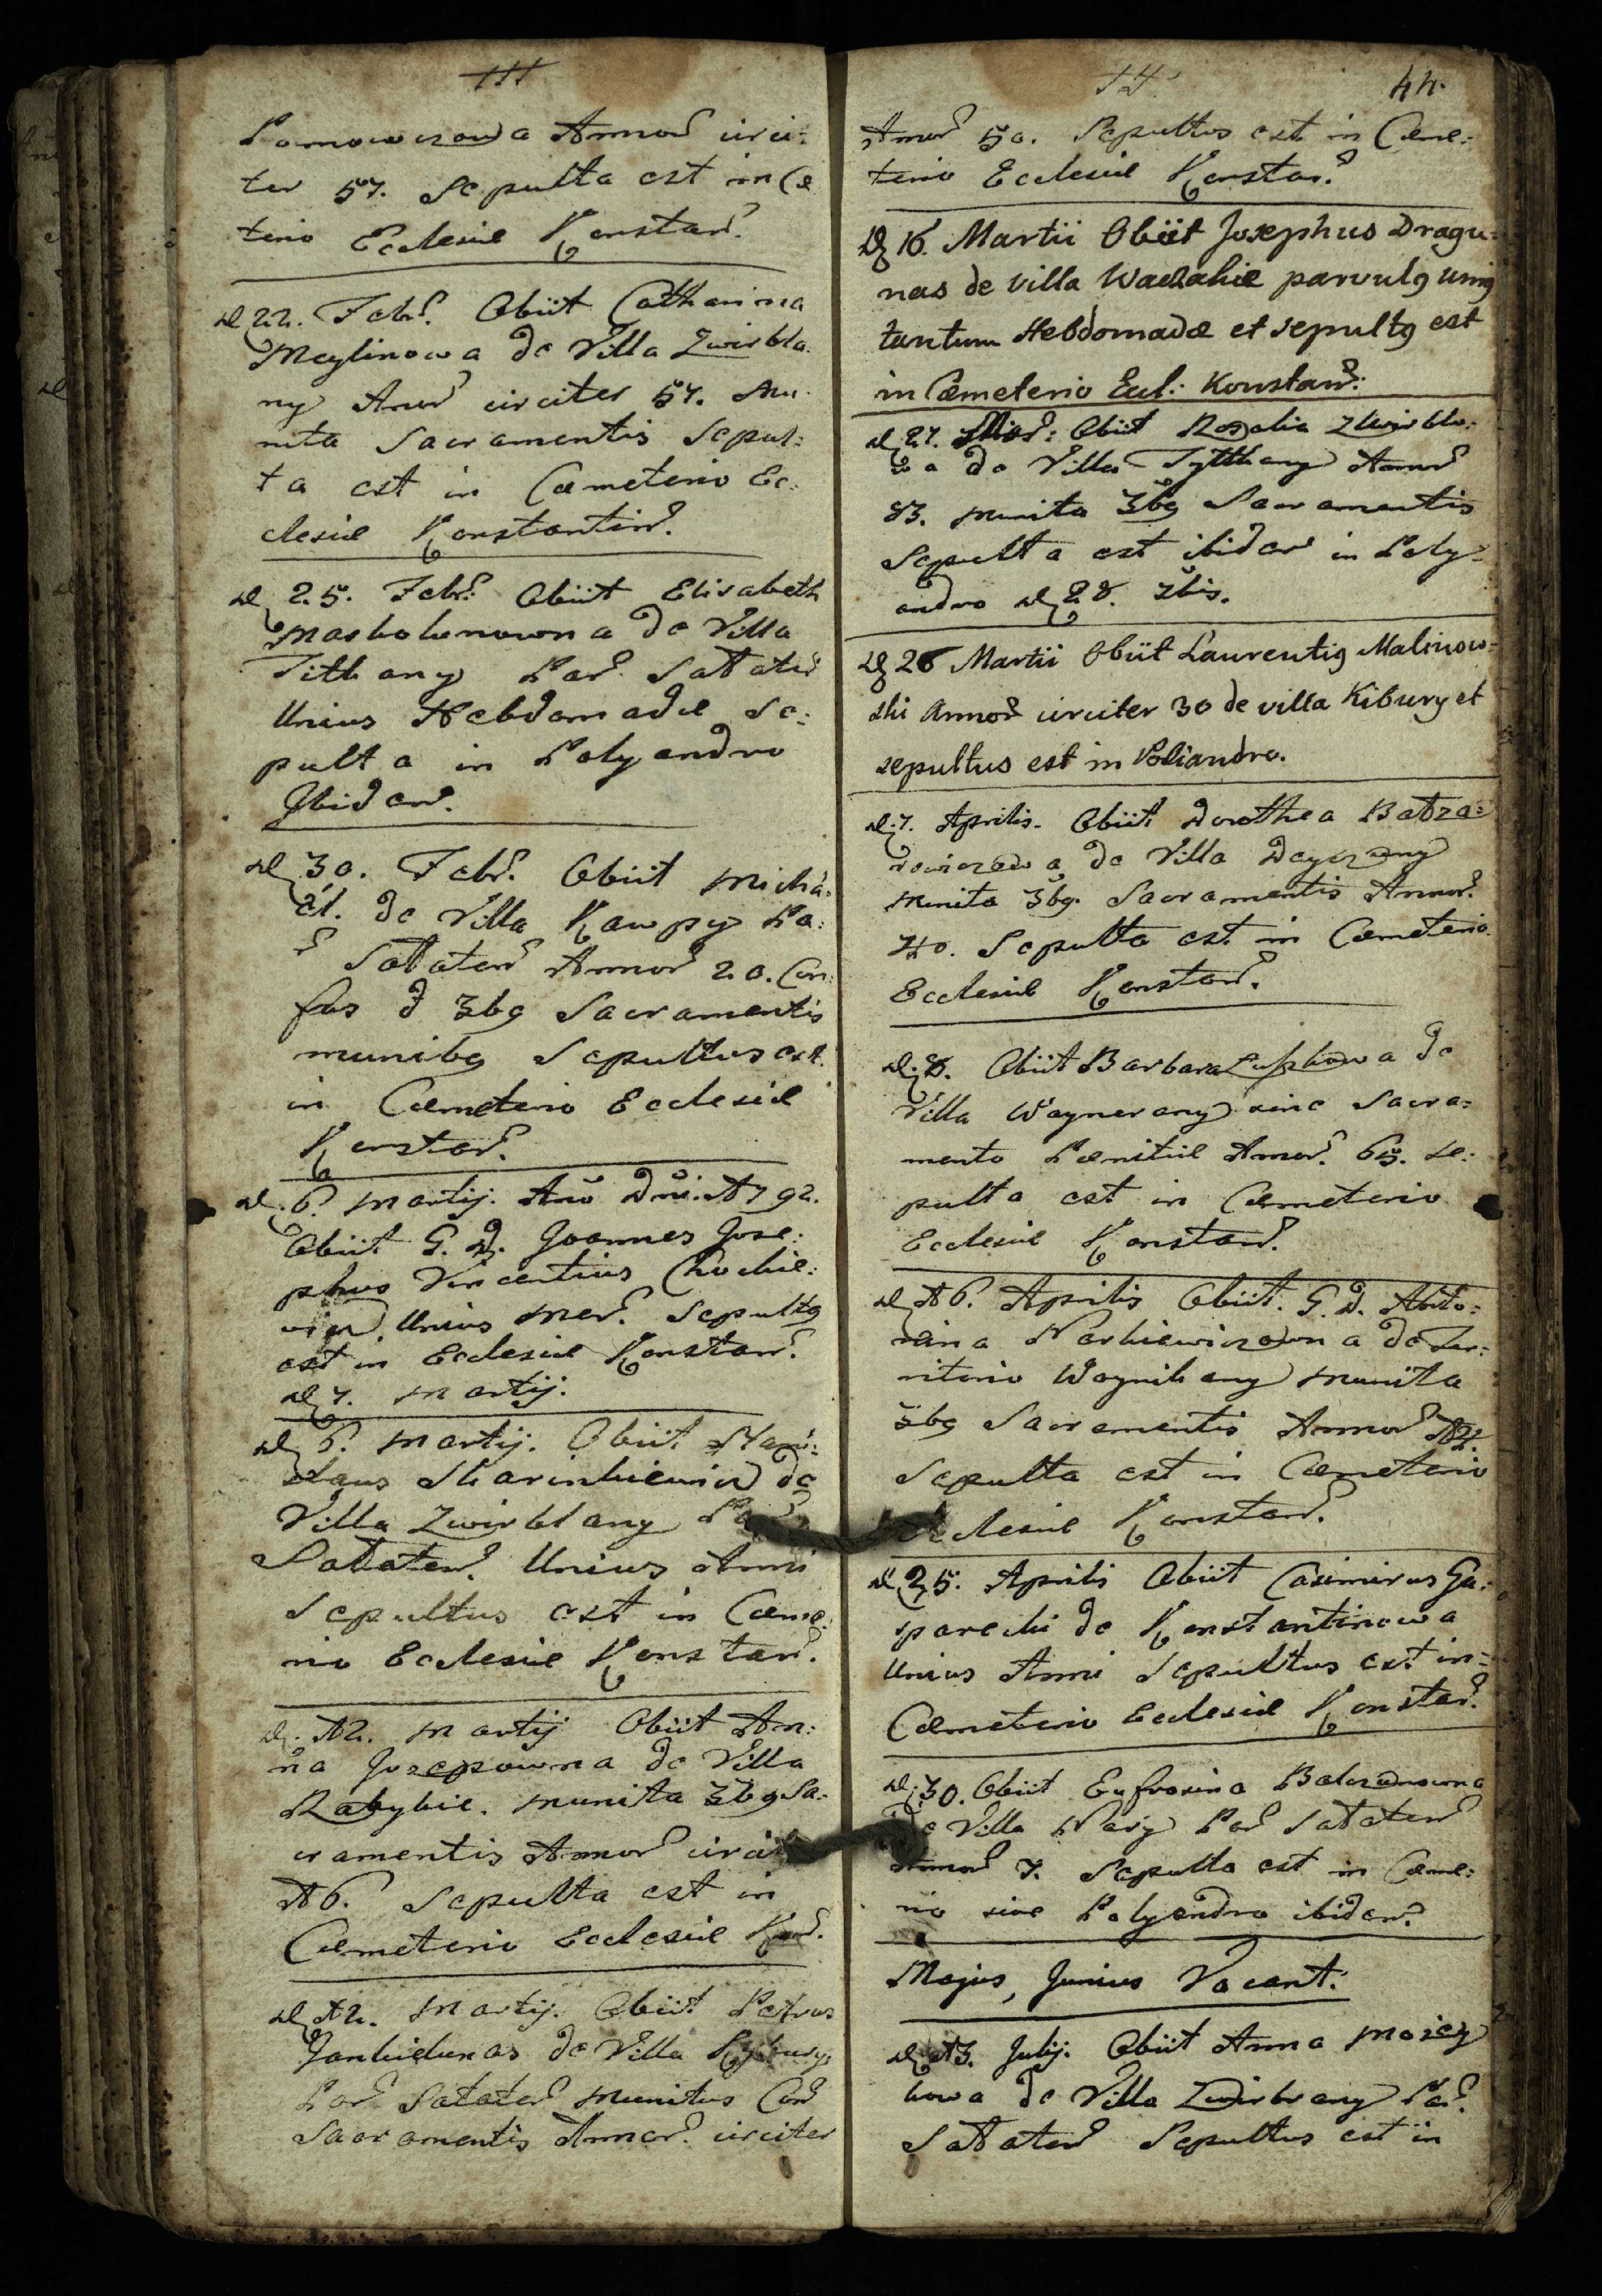 Annor circi:
ter 57. Sepulta est in Cæ
terio Ecclesiæ Konstan.
D 22. Febr. Obiit Catharina
Meylinowa de Villa Zwirbla
ny Anor circiter 57. Mu
nita Sacramentis Sepul:
ta est in Cæmeterio Ec:
clesiæ Konstantin.
D 25. Febr. Obiit Elisabeth
de Villa
Titkany Par. Satater
Unius Hebdomadæ Se:
pulta in Polyandro
Ibidem.
D 30. Febr. Obiit Micha:
el. de Villa Kawpy Pa:
r Sataten Annor 20. Con:
fes 3bg Sacramentis
munibg Sepultus est
in Cæmeterio Ecclesiæ
Konstan.
D. 6. Martij. Ano Dni. 1792.
Obiit G. D. Joannes Jose:
phus Vincentius
Unius Men. Sepultg
est in Ecclesiæ Konstan.
D 7. Martij.
D 6. Martij. Obiit Stani:
slaus Skarinkiewicz de
Villa Zwirblany Par
Sataten. Unius Anni
Sepultus est in Cæme
rio Ecclesiæ Konstan.
D. 12. Martij Obiit An:
na Juszpowna de Villa
munita 3bg Sa:
cramentis Annor circit
16. Sepulta est in
Cæmeterio Ecclesiæ Kon.
D 12. Martij. Obiit Petrus
Jankielunas de Villa Kybury
Par Sataten munitus Con
Sacramentis Annor. circiter
44.
Annor 50. Sepultus est in Cæme:
terio Ecclesiæ Konstan.
D 16. Martii Obiit Josephus Dragu:
nas de villa parvulg unig
tantum Hebdomadæ et sepultg est
in Cæmeterio Eccl: Konstan:
D 27. Obiit Rosalia Zwirblo:
wa de Villa Tytkany Annor
83. munita 3bg Sacramentis
Sepulta est ibidem in Poly
andro D 28.
D 26 Martii Obiit Laurentig Malinow=
ski Annor circiter 30 de villa Kibury et
sepultus est in Poliandro.
D. 7. Aprilis. Obiit Dorothea Batza:
rowiczowa de Villa Deyczany
munita 3bg. Sacramentis Annor.
40. Sepulta est in Cæmeterio
Ecclesiæ Konstan.
D. 8. Obiit Barbara de
Villa Waynerany sine Sacra:
mento Pænitiæ Annor. 65. Se:
pulta est in Cæmeterio
Ecclesiæ Konstan.
D 16. Aprilis Obiit. G. D. Anto:
nina Narkiewiczowna de Ter:
ritorio Waynikany munita
3bg Sacramentis Annor
Sepulta est in Cæmeterio
Ecclesiæ Konstan.
D 25. Aprilis Obiit Casimirus Ga:
parecki de Konstantinowa
Unius Anni Sepultus est in=
Cæmeterio Ecclesiæ Konstan.
D. 30. Obiit Eufrosina
de Villa Nary Par Sataten
Annor 7. Sepulta est in Cæme:
rio sive Polyandro ibidem.
Majus, Junius Vacant.
D 13. Julij. Obiit Anna Mojcey
kowa de Villa Zwirbrany Par.
Sataten Sepultus est in